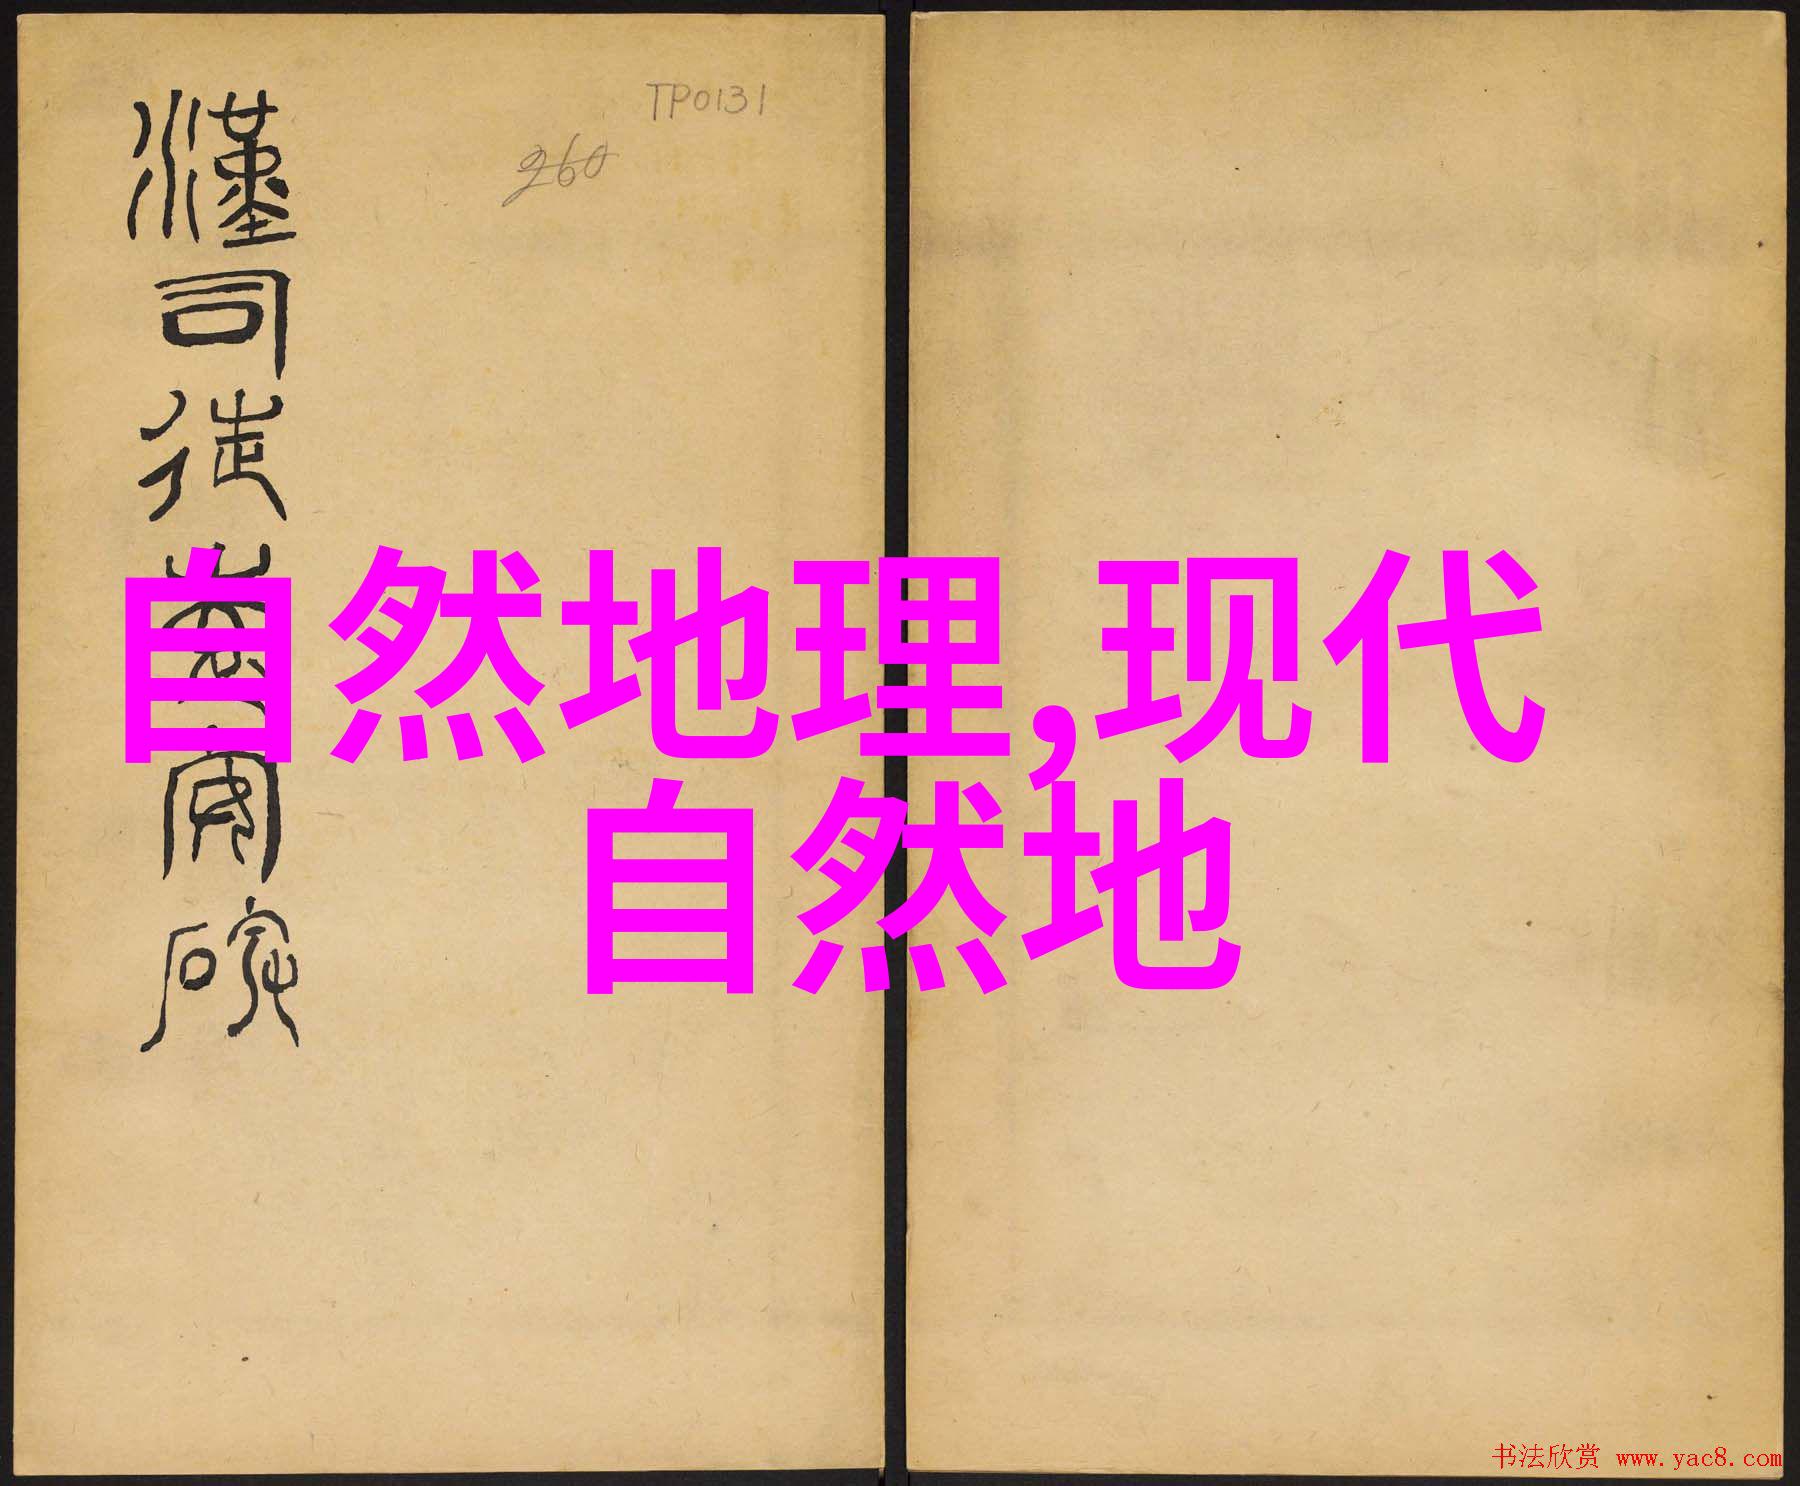 漢司徒袁安碑
TP0131
260
自然地理,现代
自然地
书法欣赏 www.yac8.com